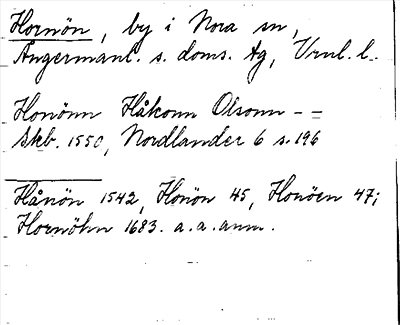 Hornön, by i Nora sn,
Ångermanl. s. doms. tg, Vrnl. l.
Honönn Håkonn Olsonn - -
Skb. 1550, Nordlander 6 s. 196
Hånön 1542, Honön 45, Honöen 47;
Hornöhn 1683. a. a. anm.